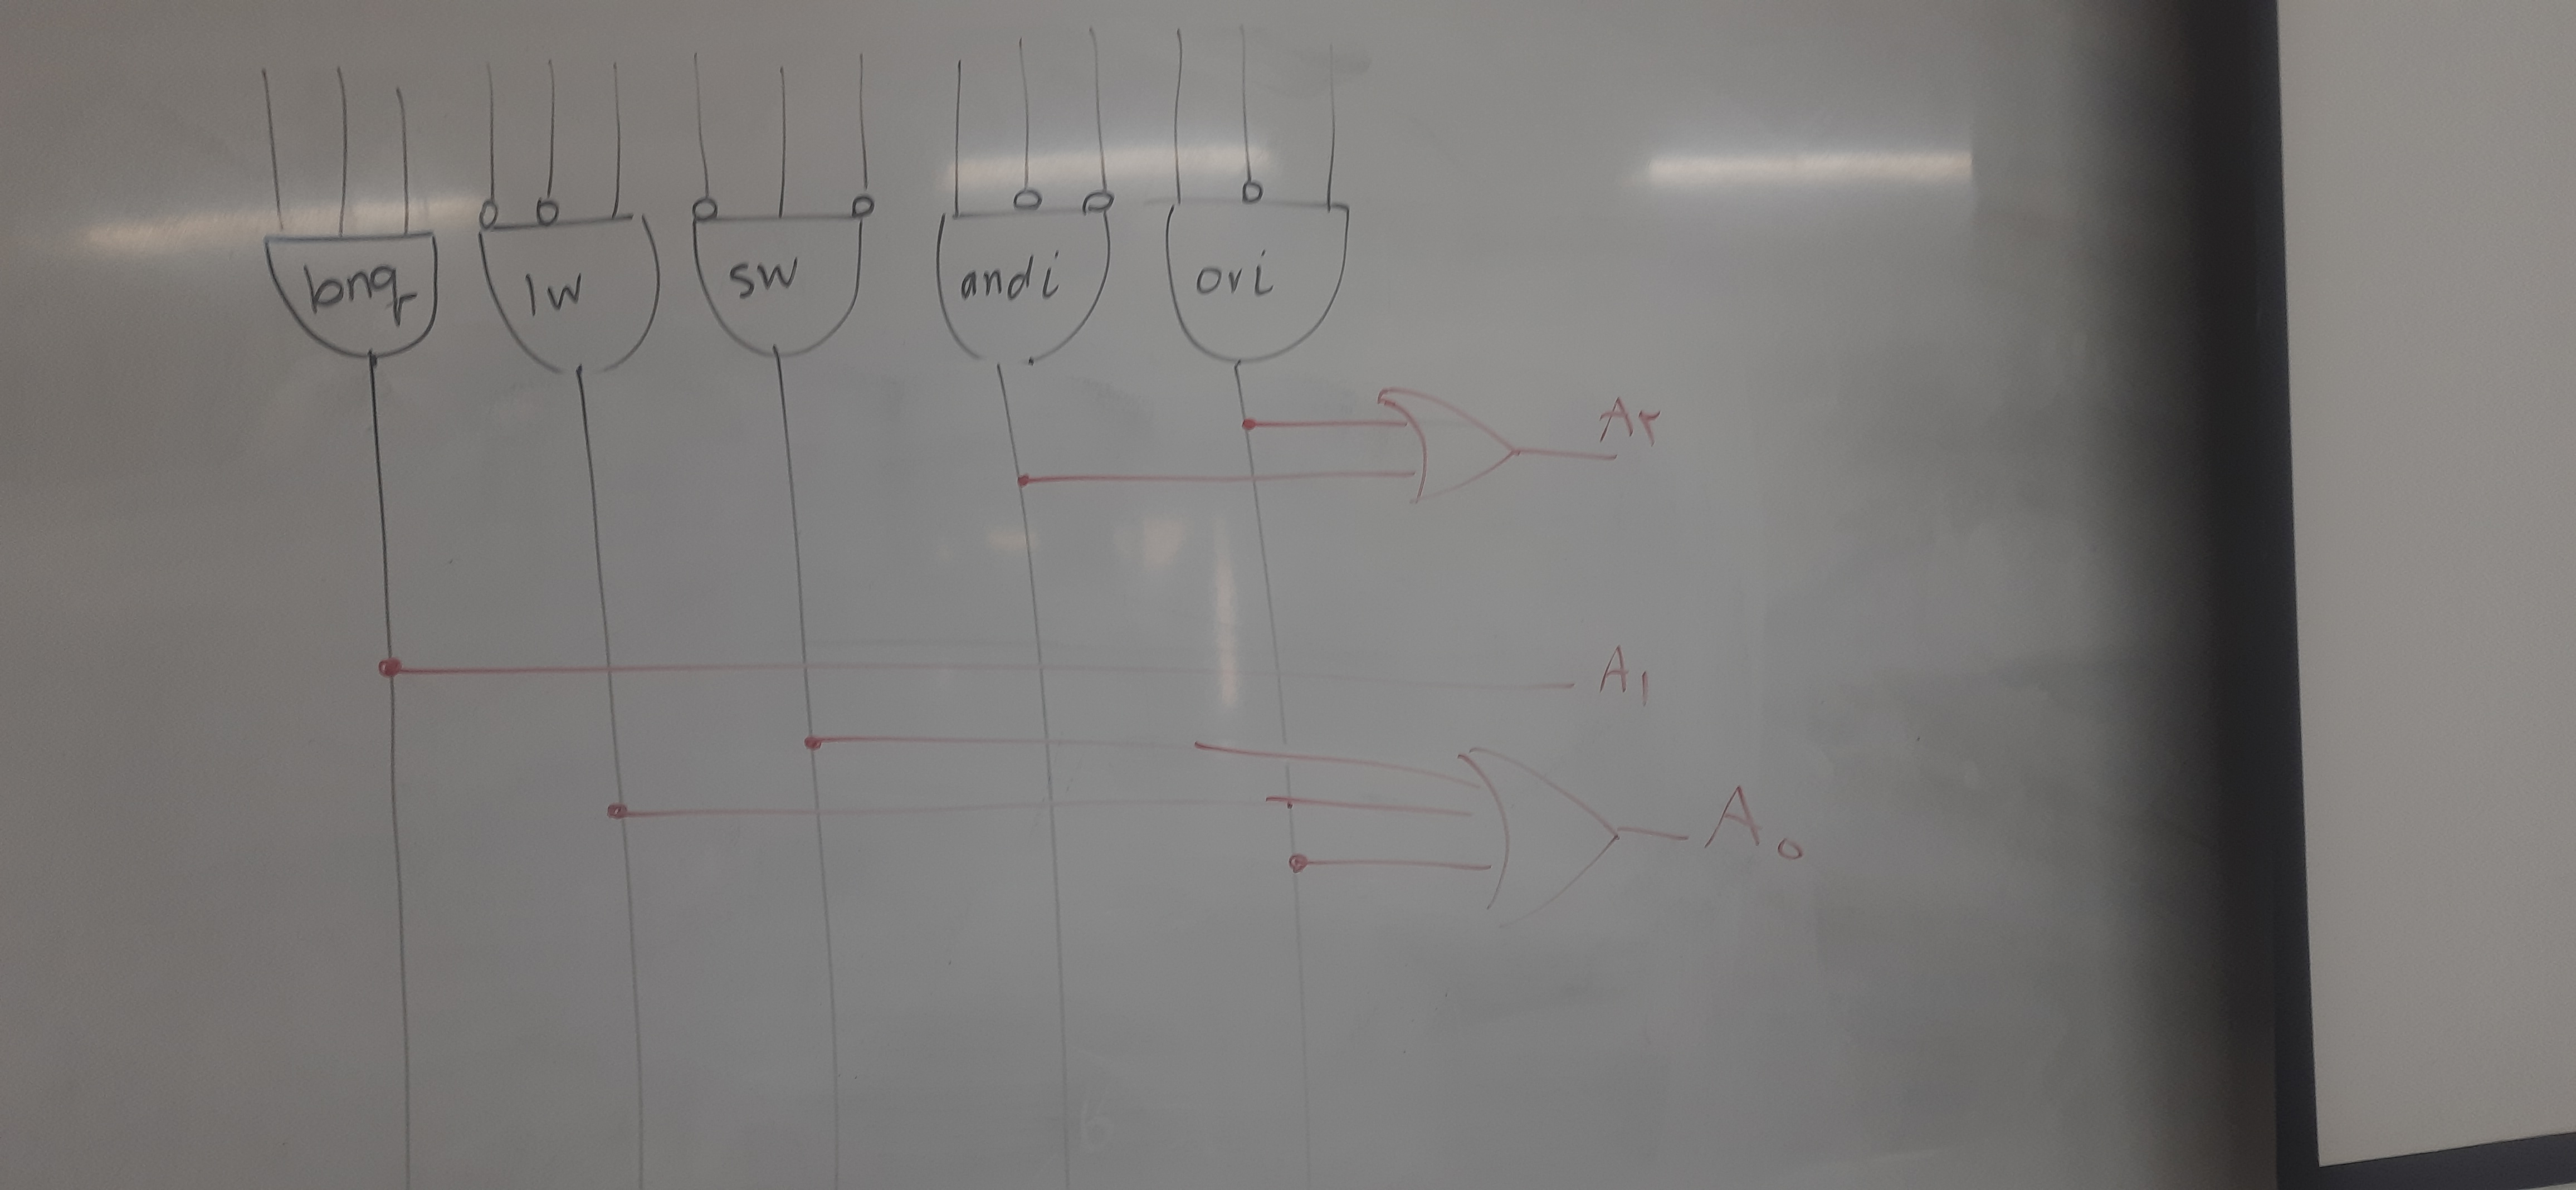 bnq lw sw andi ori
A۲
A1
A0